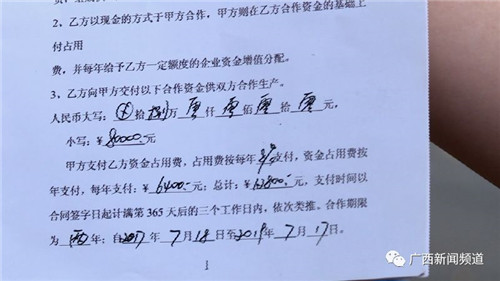 2、乙方以现金的方式于甲方合作，甲方则在乙方合作资金的基础上
付占用
费，并每年给予乙方一定额度的企业资金增值分配。
3、乙方向甲方交付以下合作资金供双方合作生产。
人民币大写：拾捌万零仟零佰零拾零元，
小写：¥80000.-元
甲方支付乙方资金占用费，占用费按每年8%支付，资金占用费按
年支付，每年支付：¥6400.-元；总计：¥12800.-元，支付时间以
合同签字日起计满第365天后的三个工作日内，依次类推。合作期限
为两年：自2017年7月18日至2019年7月17日。
1
广西新闻频道